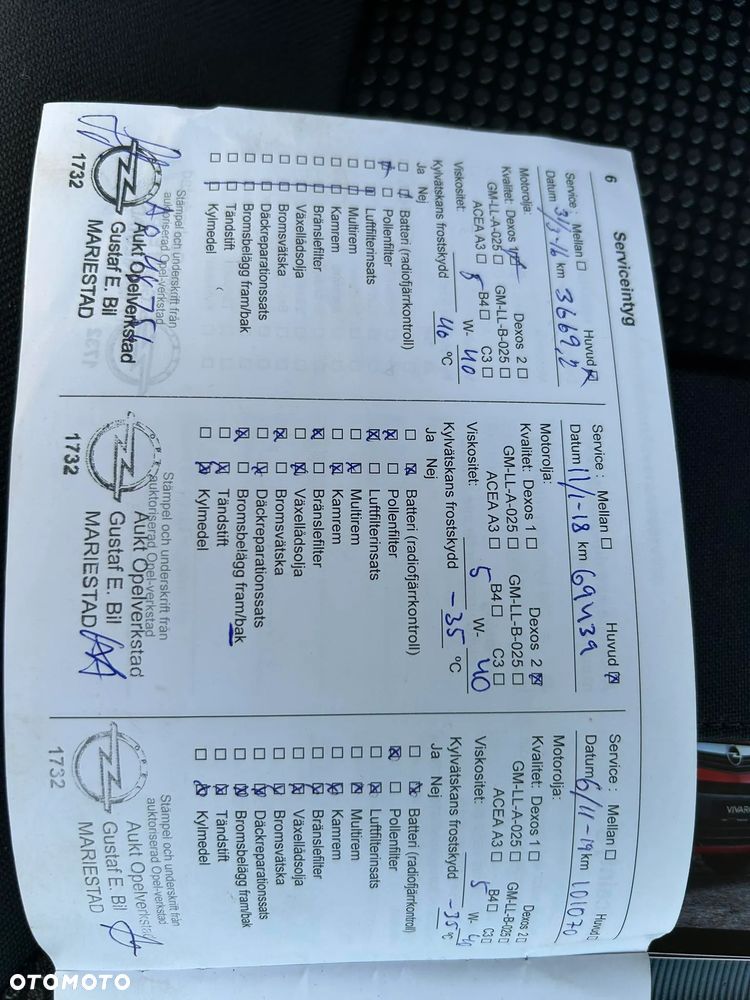 6
Serviceintyg
Service : Mellan ☐ Huvud ☒
Datum 31/3-16 km 3669,2
Motorolja:
Kvalitet: Dexos 1 ☒ Dexos 2 ☐
GM-LL-A-025 ☐ GM-LL-B-025 ☐
ACEA A3 ☐ B4 ☐ C3 ☐
Viskositet: W- 40
Kylvätskans frostskydd 40 °C
Ja Nej
Batteri (radiofjärrkontroll)
Pollenfilter
Luftfilterinsats
Multirem
Kamrem
Bränslefilter
Växellådsolja
Bromsvätska
Däckreparationssats
Bromsbelägg fram/bak
Tändstift
Kylmedel
Stämpel och underskrift från
auktoriserad Opel-verkstad
Aukt Opelverkstad
Gustaf E. Bil
MARIESTAD
1732
Service : Mellan ☐ Huvud ☒
Datum 11/1-18 km 69439
Motorolja:
Kvalitet: Dexos 1 ☐ Dexos 2 ☒
GM-LL-A-025 ☐ GM-LL-B-025 ☐
ACEA A3 ☐ B4 ☐ C3 ☐
Viskositet: 5 W- 40
Kylvätskans frostskydd -35 °C
Ja Nej
Batteri (radiofjärrkontroll)
Pollenfilter
Luftfilterinsats
Multirem
Kamrem
Bränslefilter
Växellådsolja
Bromsvätska
Däckreparationssats
Bromsbelägg fram/bak
Tändstift
Kylmedel
Stämpel och underskrift från
auktoriserad Opel-verkstad
OPEL
Aukt Opelverkstad
Gustaf E. Bil
MARIESTAD
1732
Service : Mellan ☐ Huvud ☐
Datum 6/11-19 km 101070
Motorolja:
Kvalitet: Dexos 1 ☐ Dexos 2 ☐
GM-LL-A-025 ☐ GM-LL-B-025 ☐
ACEA A3 ☐ B4 ☐ C3 ☐
Viskositet: 5 W-
Kylvätskans frostskydd -35 °C
Ja Nej
Batteri (radiofjärrkontroll)
Pollenfilter
Luftfilterinsats
Multirem
Kamrem
Bränslefilter
Växellådsolja
Bromsvätska
Däckreparationssats
Bromsbelägg fram/bak
Tändstift
Kylmedel
Stämpel och underskrift från
auktoriserad Opel-verkstad
OPEL
Aukt Opelverkstad
Gustaf E. Bil
MARIESTAD
1732
VIVARO
OTOMOTO